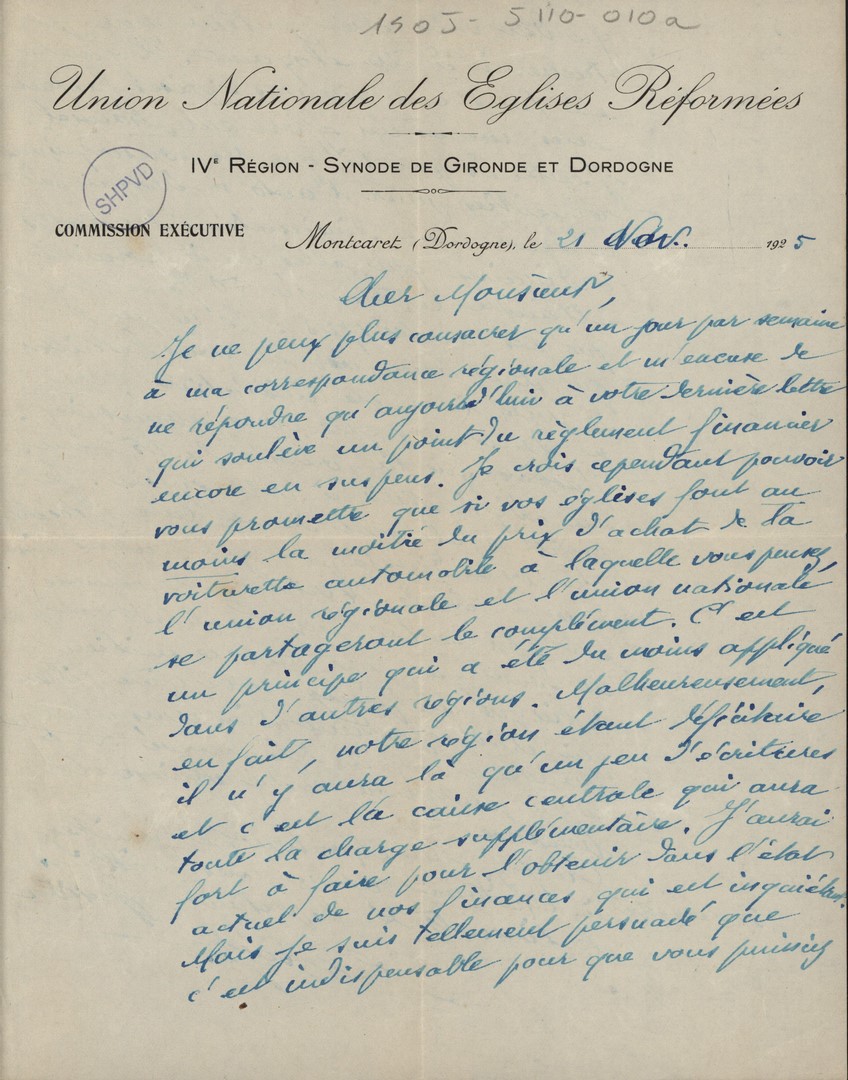 1905-5110-010a
Union Nationale des Eglises Réformées
IVᴱ Région - Synode de Gironde et Dordogne
SHPVD
COMMISSION EXÉCUTIVE
Montcaret (Dordogne), le 21 Nov. 1925
Cher Monsieur,
Je ne peux plus consacrer qu'un jour par semaine
à ma correspondance régionale et m'excuse de
ne répondre qu'aujourd'hui à votre dernière lettre
qui soulève un point du règlement financier
encore en suspens. Je crois cependant pouvoir
vous promettre que si vos églises font au
moins la moitié du prix d'achat de la
voiturette automobile à laquelle vous pensez,
l'union régionale et l'union nationale
se partageront le complément. C'est
un principe qui a été du moins appliqué
dans d'autres régions. Malheureusement,
en fait, notre région étant déficitaire
il n'y aura là qu'un peu d'écritures
et c'est la caisse centrale qui aura
toute la charge supplémentaire. J'aurai
fort à faire pour l'obtenir dans l'état
actuel de nos finances qui est inquiétant.
Mais je suis tellement persuadé que
c'est indispensable pour que vous puissiez